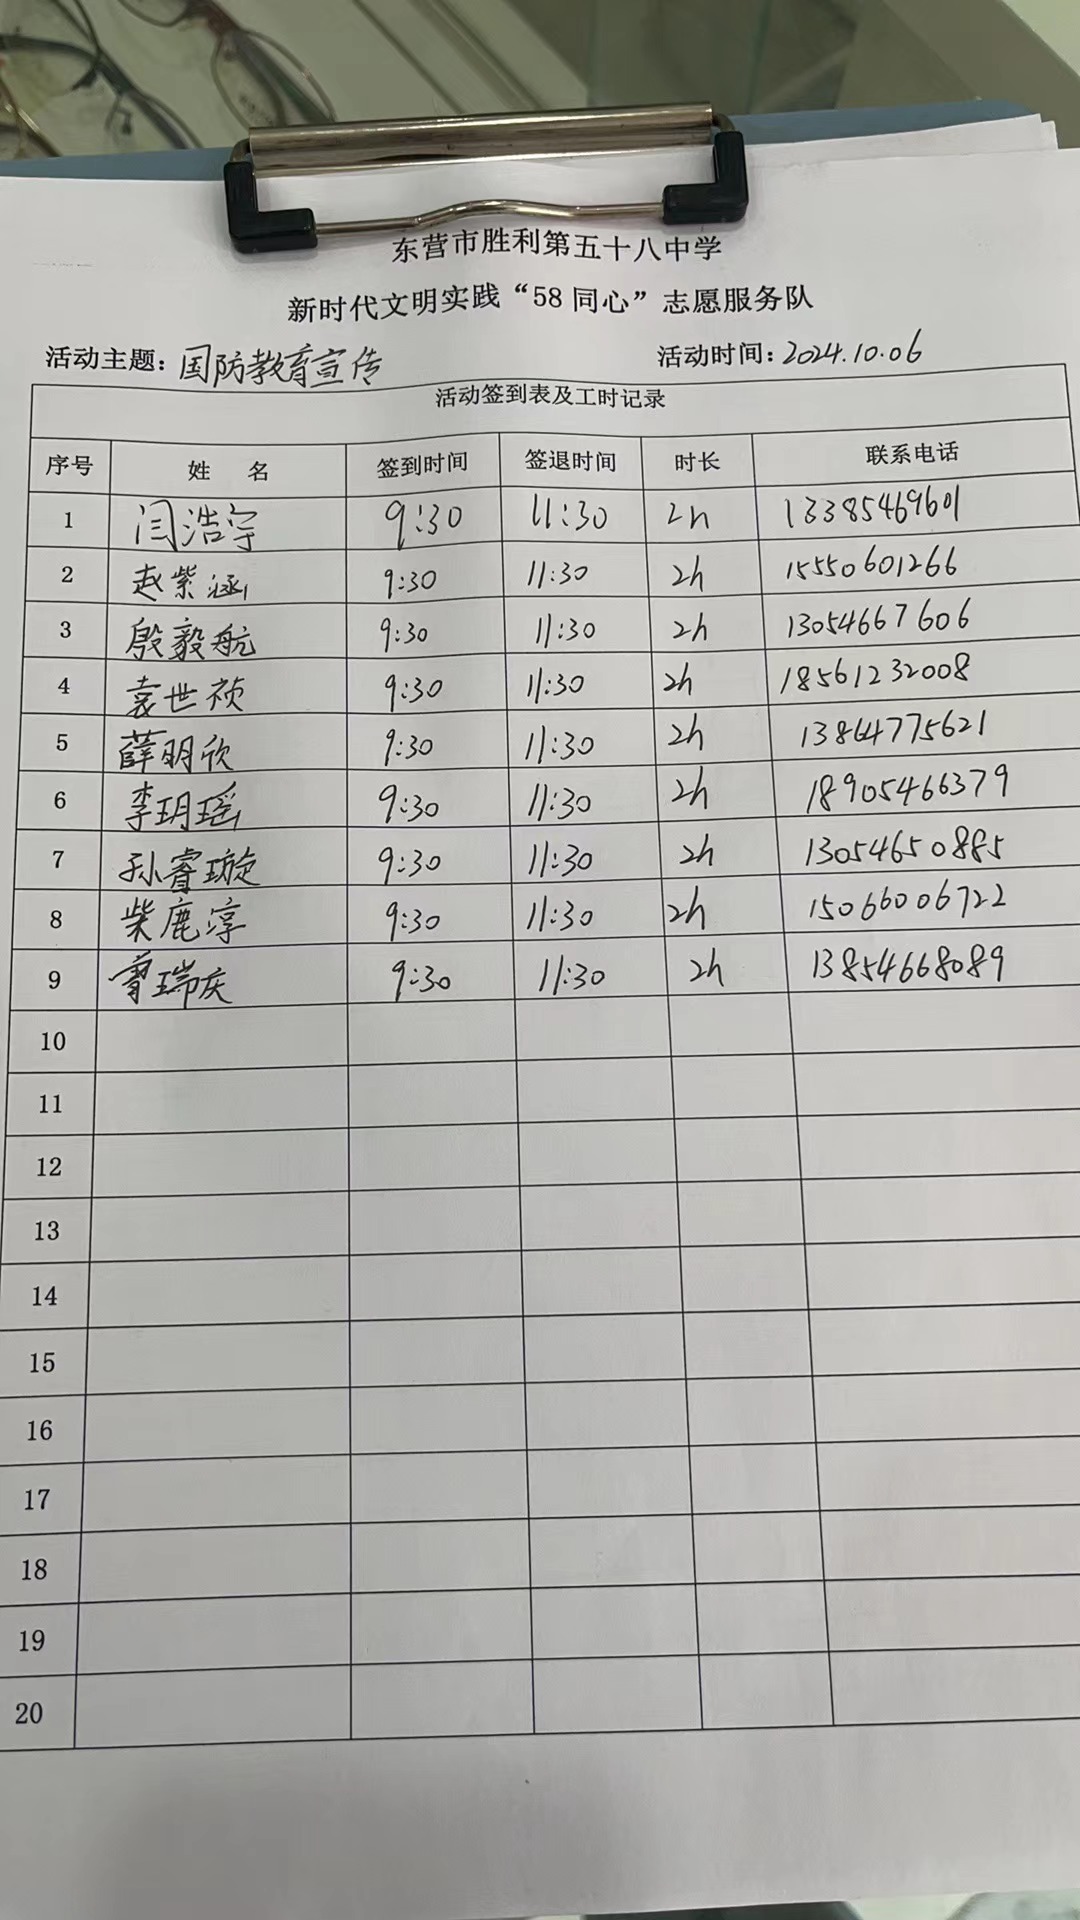 东营市胜利第五十八中学
新时代文明实践“58 同心”志愿服务队
活动主题：国防教育宣传 活动时间：2024.10.06
活动签到表及工时记录
序号 姓 名 签到时间 签退时间 时长 联系电话
1 闫浩宇 9:30 11:30 2h 13385469601
2 赵紫涵 9:30 11:30 2h 15550601266
3 殷毅航 9:30 11:30 2h 13054667606
4 袁世祯 9:30 11:30 2h 18561232008
5 薛明欣 9:30 11:30 2h 13864775621
6 李玥瑶 9:30 11:30 2h 18905466379
7 孙睿璇 9:30 11:30 2h 13054650885
8 柴鹿淳 9:30 11:30 2h 15066006722
9 瑞庆 9:30 11:30 2h 13854668089
10
11
12
13
14
15
16
17
18
19
20